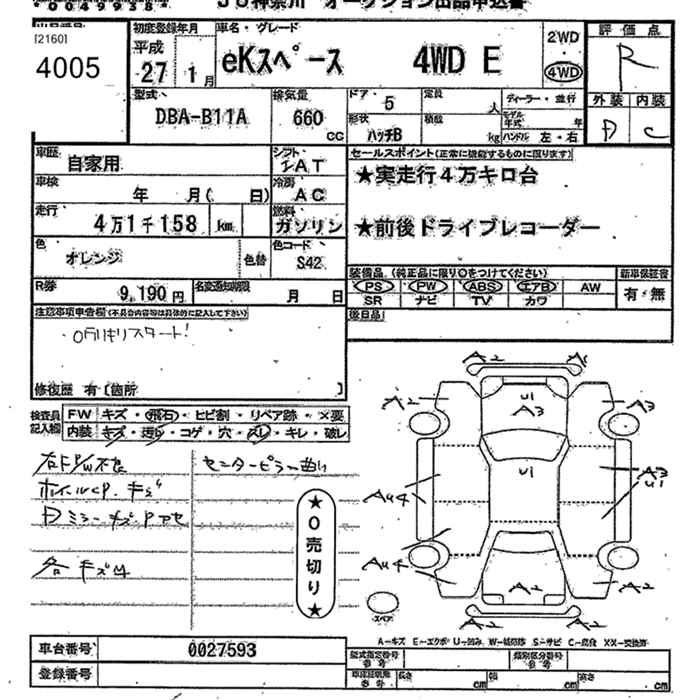 *0049938*
JU神奈川 オークション出品申込書
[2160]
4005
初度登録年月
平成
27 1 月
車名・グレード
eKスペース 4WD E
2WD
・
4WD
評価点
R
外装 内装
D C
型式
DBA-B11A
排気量
660
CC
ドア・
5
形状
ハッチB
定員
人
積載
kg
ディーラー・並行
モデル年式 年
ハンドル 左・右
車歴
自家用
シフト
IAT
車検
年 月( 日)
冷房
AC
走行
4万1千158 km
燃料
ガソリン
色
オレンジ
色替
色コード
S42
セールスポイント(正常に機能するものに限ります)
★実走行4万キロ台
★前後ドライブレコーダー
R券
9,190円
名変通知期限
月 日
装備品(純正品に限り○をつけてください)
PS PW ABS エアB AW
SR ナビ TV カワ
新車保証書
有・無
後日品
注意事項申告欄(不具合内容等は具体的に記入して下さい)
0万円キリスタート!
修復歴 有〔箇所 〕
検査員記入欄
FW キズ・飛石・ヒビ割・リペア跡・×要
内装 キズ・汚れ・コゲ・穴・スレ・キレ・破レ
右FP/W不良
センターピラー曲り
ホイールCP.キズ
Dミラーキズ・Pアセ
各キズ凹
★0売切り★
A2 A1
A2 U1 A3 A3
U1 A3 U1
AU4
AU4 A2 A2
A2
スペアー
A-キズ E-エクボ U-凹み W-補修跡 S-サビ C-腐食 XX-交換済
車台番号
0027593
登録番号
型式指定番号 類別区分番号
参考 参考
車庫証明用参考 長さ cm 幅 cm 高さ cm